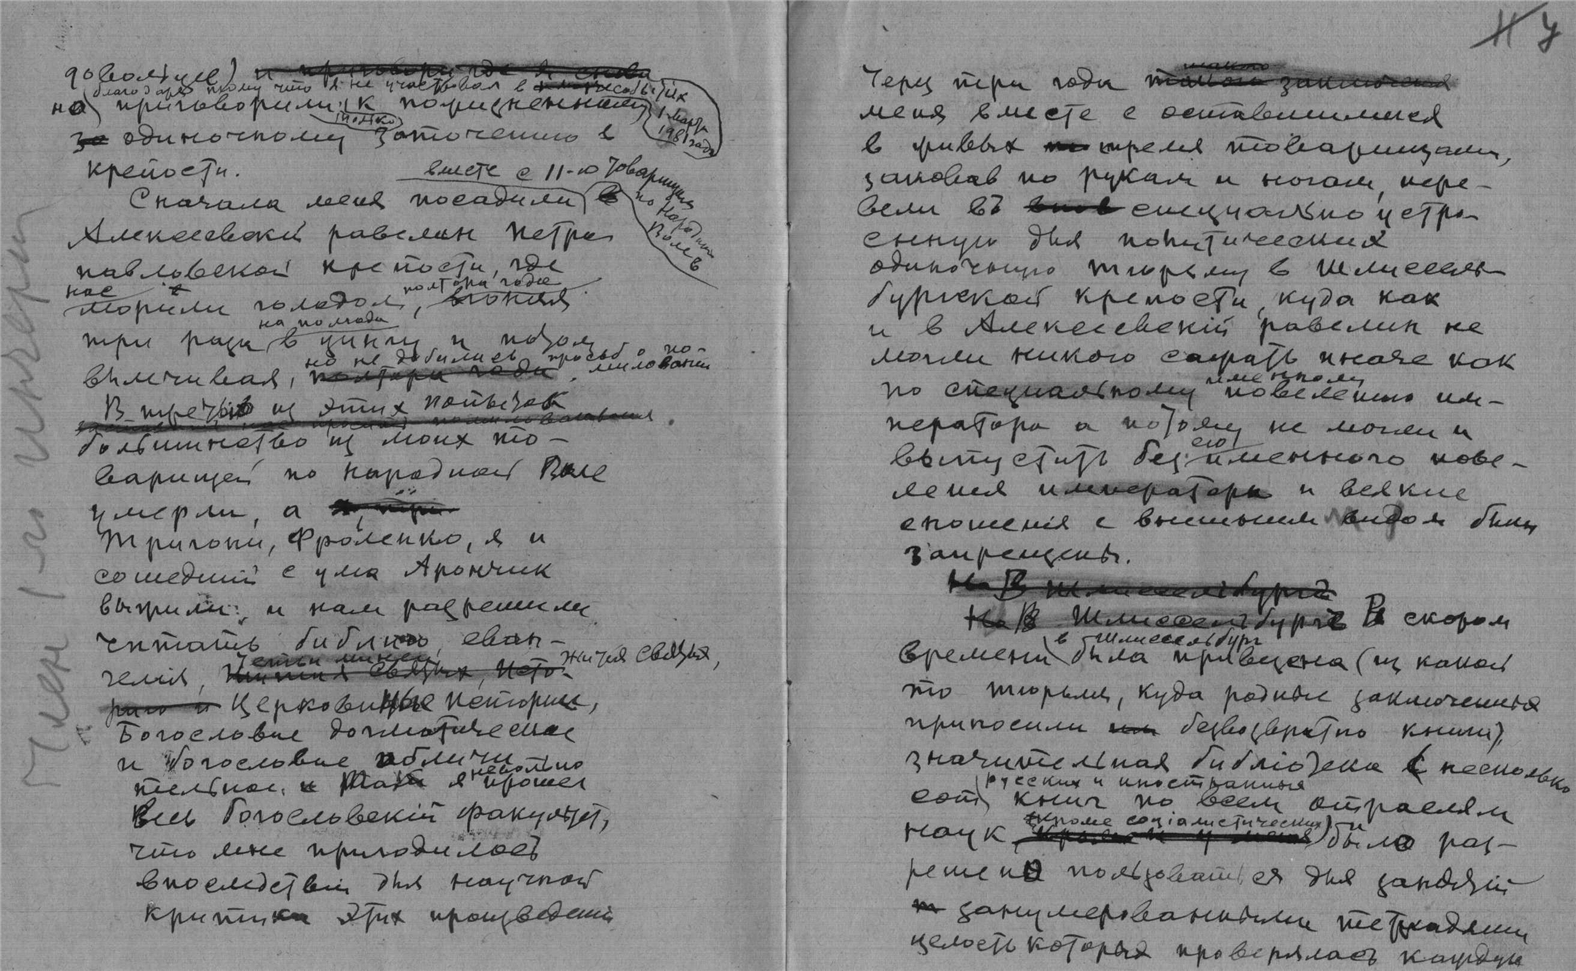 и у
довольуев) и приговори где я снова
благодаря тому что я не участвовал в событиях
1 марта
1981 года
но приговорили к пожизненному
только
за одиночному заточению в
крепости.
вместе с 11-ю товарищами
по Народной
Воле в
Сначала меня посадили в
Алексеевский равелин Петро
павловской крепости, где
нас морили голодом, полтора года
на полгода
три раза в цингу и потом
но не добились просьб о по-
миловании
вылечивая, полтора года.
В третью из этих попыток
большинство из моих то-
варищей по Народной Воле
умерли, а три
Тригони, Фроленко, я и
сошедший с ума Арончик
выжили и нам разрешили
читать библию, еван-
Четьи минеи, Жития Святых,
гелия, Жития Святых, исто-
рию и Церковные истории,
Богословие догматическое
и богословие обличи
тельное. и Так я невольно прошел
весь богословский факультет,
что мне пригодилось
впоследствии для научной
критики этих произведений
Член 1-го
Через три года такого заключения
меня вместе с оставшимися
в живых тремя товарищами,
заковав по рукам и ногам, пере-
вели въ специально устро-
енную для политических
одиночную тюрьму в Шлиссель-
бургской крепости, куда как
и в Алексеевский равелин не
могли никого сажать иначе как
по специальному именному повелению им-
ператора а потому не могли и
выпустить без его именного пове-
ления императора и всякие
сношения с внешним были
запрещены.
Но В Шлиссельбурге
Но В Шлиссельбурге В скором
времени в Шлиссельбург была привезена (из какой
то тюрьмы, куда родные заключенных
приносили им безвозвратно книги),
значительная библиотека в несколько
сот русских и иностранных книг по всем отраслям
наук (кроме социалистических) и было раз-
решено пользоваться для занятий
занумерованными тетрадями
целость которых проверялась каждую